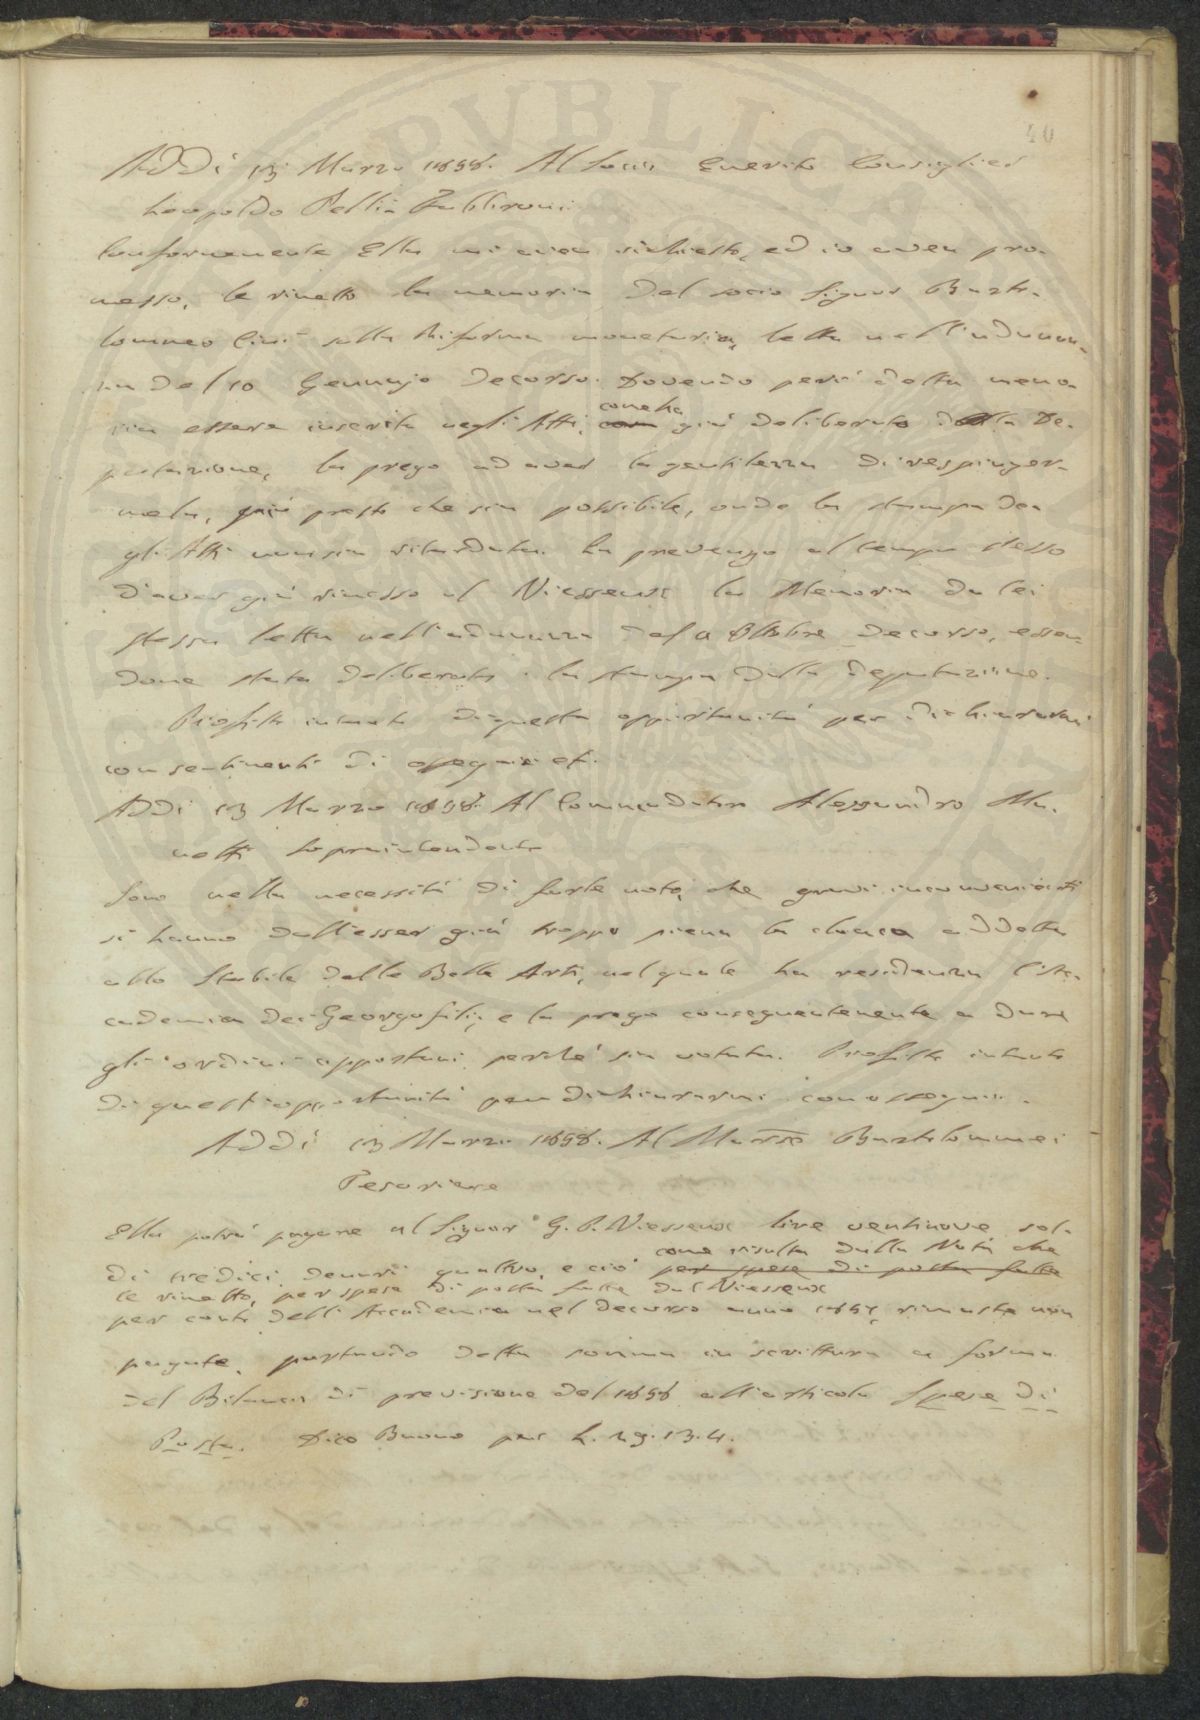 40
Addì 13 Marzo 1858. Al Socio Emerito Consiglier
Leopoldo Pellia Fabbroni
Conformemente Ella mi avea richiesto, ed io avea pro-
messo, le rimetto la memoria del socio Signor Barto-
lommeo Cini sulla Riforma monetaria, letta nell'adunan-
za del 10 Gennajo decorso. Dovendo però detta memo-
ria essere inserita negli Atti, come ha già deliberato della De-
putazione, la prego ad aver la gentilezza di respinger-
mela, più presto che sia possibile, onde la stampa de-
gli Atti non sia ritardata. La prevengo al tempo stesso
d'aver già rimesso al Vieusseux la Memoria da lei
stessa letta nell'adunanza del Ottobre decorso, essen-
done stata deliberata la stampa dalla Deputazione.
Profitto intanto di questa opportunità per dichiararmi
con sentimenti di ossequio ec.
Addì 13 Marzo 1858. Al Commendatore Alessandro Ma-
netti Soprintendente
Sono nella necessità di farle noto, che gravi inconvenienti
si hanno dall'esser già troppo piena la cloaca addetta
allo Stabile delle Belle Arti, nel quale ha residenza l'Ac-
cademia dei Georgofili, e la prego conseguentemente a dare
gli ordini opportuni perchè sia votata. Profitto intanto
di quest'opportunità per dichiararmi con ossequio.
Addì 13 Marzo 1858. Al Marchese Bartolommei
Tesoriere
Ella potrà pagare al Signor G. P. Vieusseux lire ventinove sol-
di tredici denari quattro, e ciò per spese di posta fatte come risulta dalla Nota che
le rimetto, per spese di posta fatte dal Vieusseux
per conto dell'Accademia nel decorso anno 1857, rimaste non
pagate, portando detta somma in scrittura a forma
del Bilancio di previsione del 1858 all'articolo Spese di
Posta. Dico Buono per L. 29.13.4.